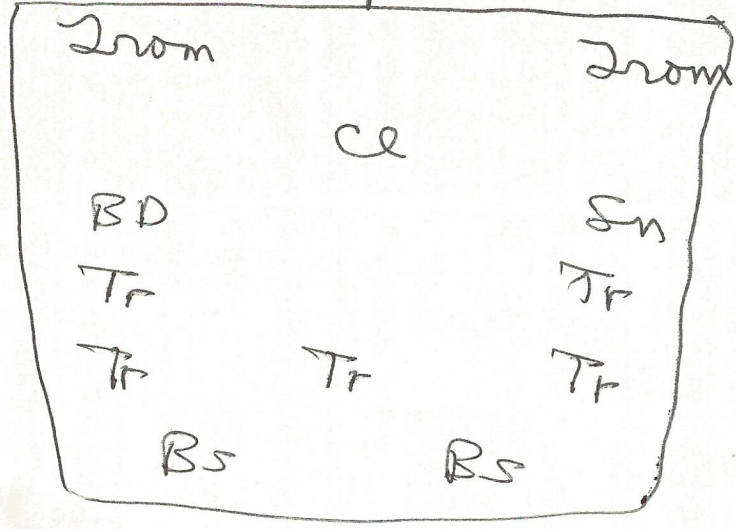 Trom Trom
Cl
BD Sn
Tr Tr
Tr Tr Tr
Bs Bs